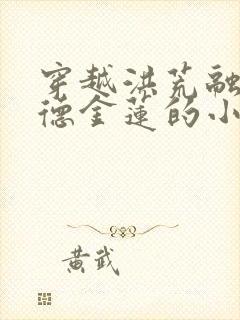 穿越洪荒融
德金莲的小
黄武